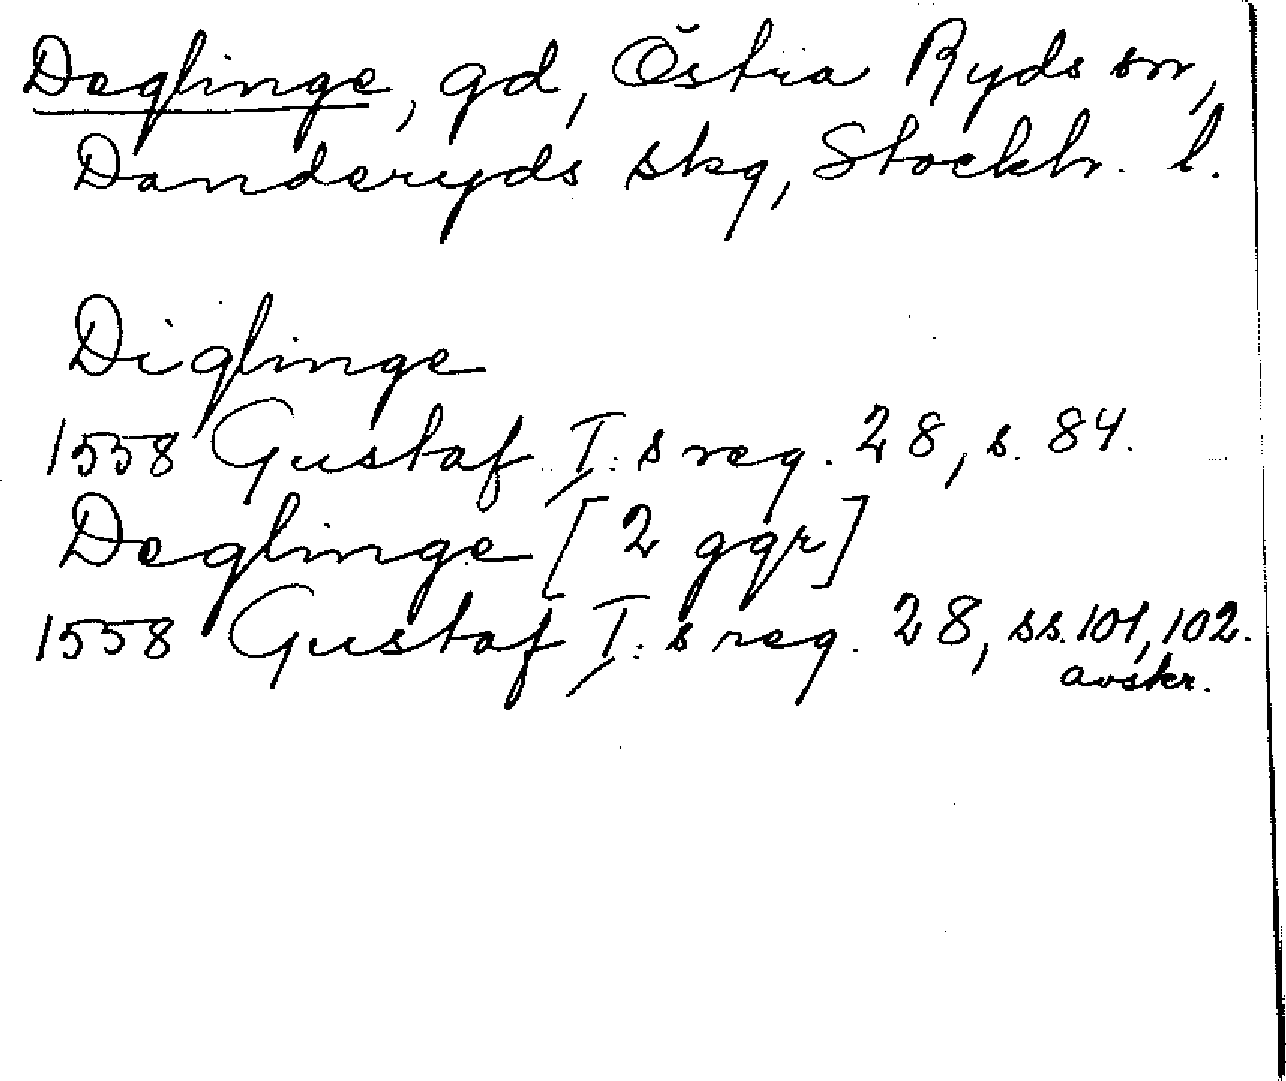 Deglinge, gd, Östra Ryds sn,
Danderyds skg, Stockh. l.
Diglinge
1558 Gustaf I:s reg. 28, s. 84.
Deglinge [2 ggr]
1558 Gustaf I:s reg. 28, ss. 101, 102.
avskr.